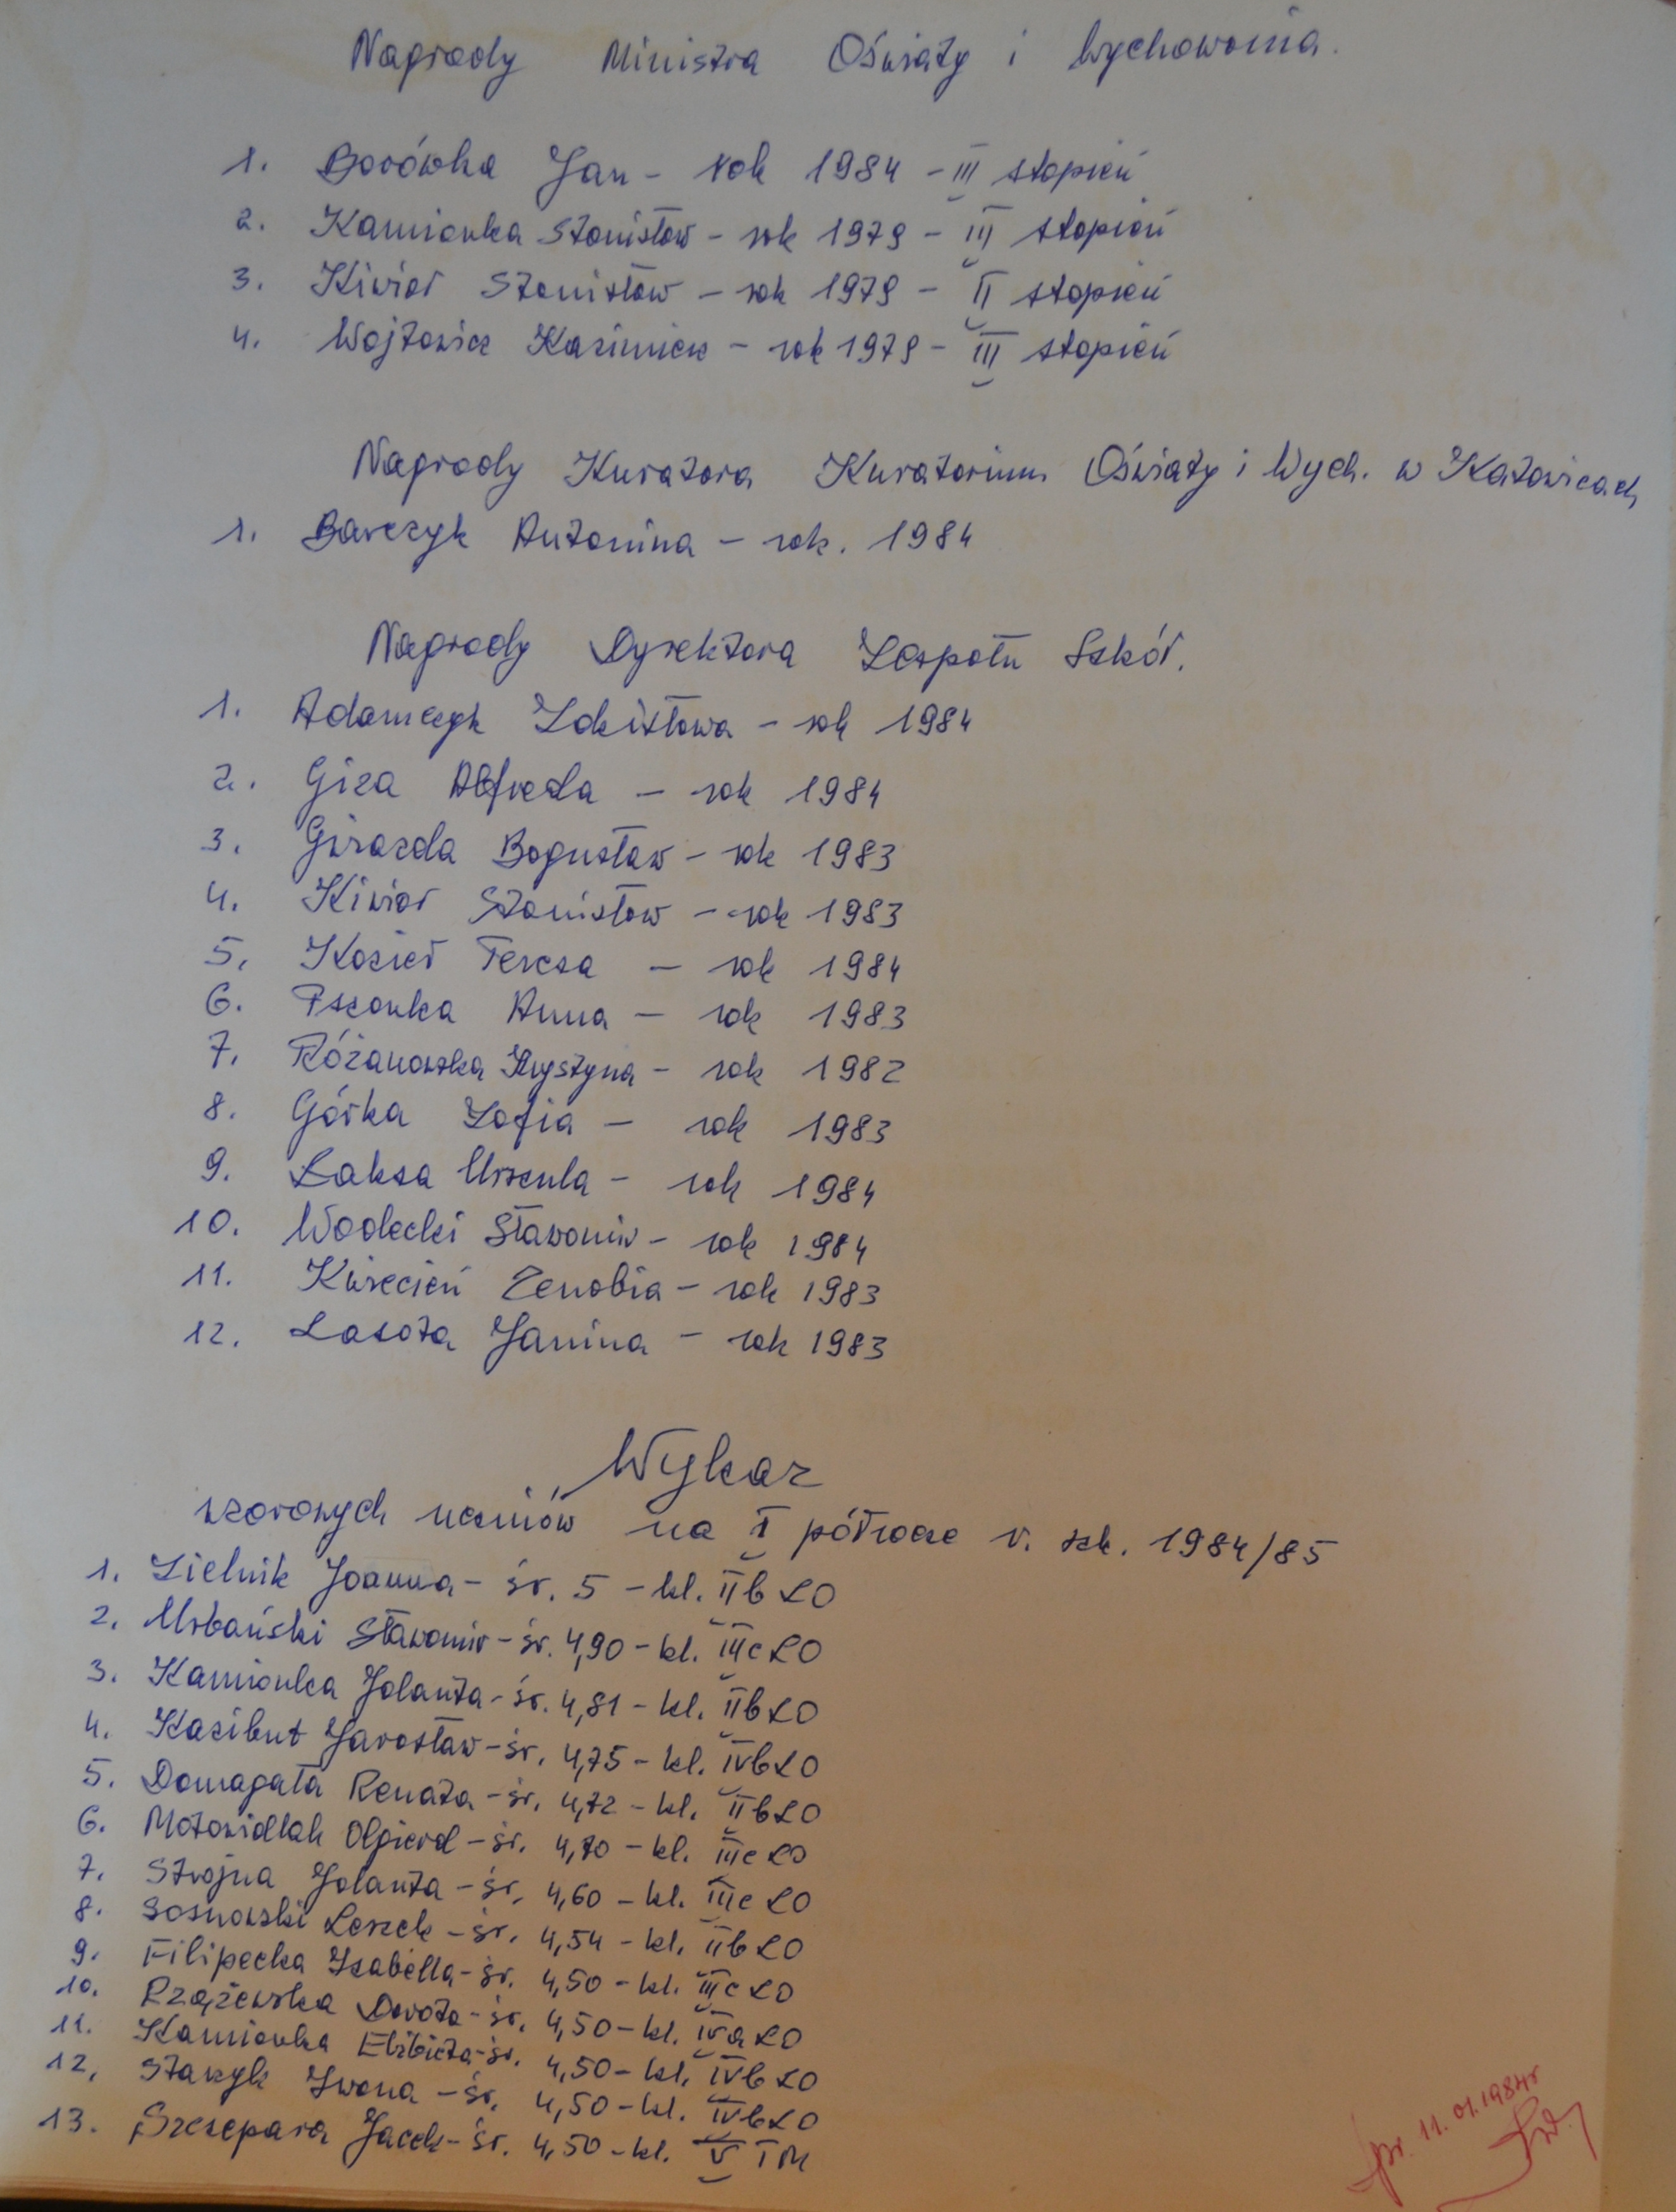 Nagrody Ministra Oświaty i Wychowania.
1. Borówka Jan - rok 1984 - III stopień
2. Kamionka Stanisław - rok 1979 - III stopień
3. Kiwior Stanisław - rok 1979 - II stopień
4. Wojtowicz Kazimierz - rok 1979 - III stopień
Nagrody Kuratora Kuratorium Oświaty i Wych. w Katowicach
1. Barczyk Antonina - rok. 1984
Nagrody Dyrektora Zespołu Szkół.
1. Adamczyk Zdzisława - rok 1984
2. Giza Alfreda - rok 1984
3. Gwiazda Bogusław - rok 1983
4. Kiwior Stanisław - rok 1983
5. Kozieł Teresa - rok 1984
6. Pszonka Anna - rok 1983
7. Różanowska Krystyna - rok 1982
8. Górka Zofia - rok 1983
9. Łaksa Urszula - rok 1984
10. Wodecki Sławomir - rok 1984
11. Kwiecień Zenobia - rok 1983
12. Lasota Janina - rok 1983
Wykaz
wzorowych uczniów na I półrocze r. szk. 1984/85
1. Zielnik Joanna - śr. 5 - kl. IIb LO
2. Urbański Sławomir - śr. 4,90 - kl. IIIc LO
3. Kamionka Jolanta - śr. 4,81 - kl. IIb LO
4. Kazibut Jarosław - śr. 4,75 - kl. IVb LO
5. Domagała Renata - śr. 4,72 - kl. IIb LO
6. Motowidlak Olgierd - śr. 4,70 - kl. IIIc LO
7. Strojna Jolanta - śr. 4,60 - kl. IIIc LO
8. Sosnowski Leszek - śr. 4,54 - kl. IIb LO
9. Filipecka Izabella - śr. 4,50 - kl. IIIc LO
10. Rzążewska Dorota - śr. 4,50 - kl. IVa LO
11. Kamionka Elżbieta - śr. 4,50 - kl. IVb LO
12. Stanyk Iwona - śr. 4,50 - kl. IVb LO
13. Szczepara Jacek - śr. 4,50 - kl. V TM
spr. 11.01.1984r